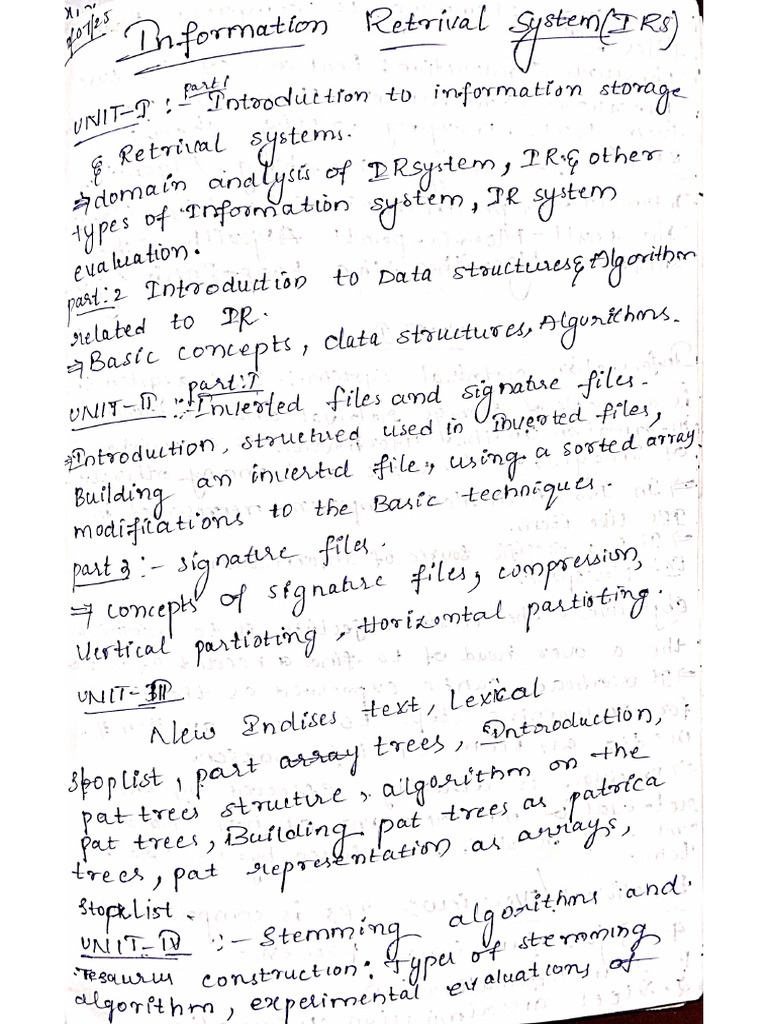 /07/25
Information Retrival System(IRS)
UNIT-I :- part1 Introduction to information storage
& Retrival systems.
⇒ domain analysis of IRsystem, IR & other
types of Information system, IR system
evaluation.
part:2 Introduction to Data structures & Algorithm
related to IR.
⇒ Basic concepts, data structures, Algorithms.
UNIT-II :- part:I Inverted files and signature files.
⇒ Introduction, structued used in Inverted files,
Building an inverted file, using a sorted array.
modifications to the Basic techniques.
part 2 :- signature files.
⇒ concepts of signature files, compression,
Vertical partioting, Horizontal partioting.
UNIT-III
New Indises text, Lexical
Stoplist, part array trees, Introduction,
pat trees structure, algorithm on the
pat trees, Building pat trees as patrica
trees, pat representation as arrays,
StopList.
UNIT-IV :- Stemming algorithms and
Tesaurus construction: Types of stemming
algorithm, experimental evaluations of